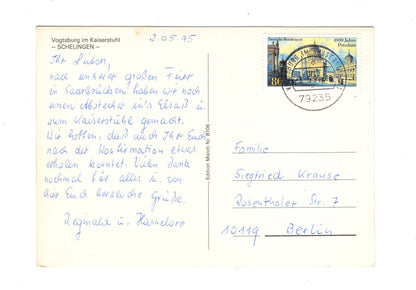 Vogtsburg im Kaiserstuhl
– SCHELINGEN –
2.05.95
Ihr Lieben,
nach unserer großen Feier
in Saarbrücken haben wir noch
einen Abstecher ins Elsaß u.
zum Kaiserstuhl gemacht.
Wir hoffen, daß auch Ihr Euch
nach der Konfirmation etwas
erholen konntet. Vielen Dank
nochmal für alles u. von
hier Euch herzliche Grüße.
Reginald u. Hannelore
Edition Merth Nr.
Deutsche Bundespost
1000 Jahre
Potsdam
80
79235
Familie
Siegfried Krause
Rosenthaler Str. 7
10119 Berlin